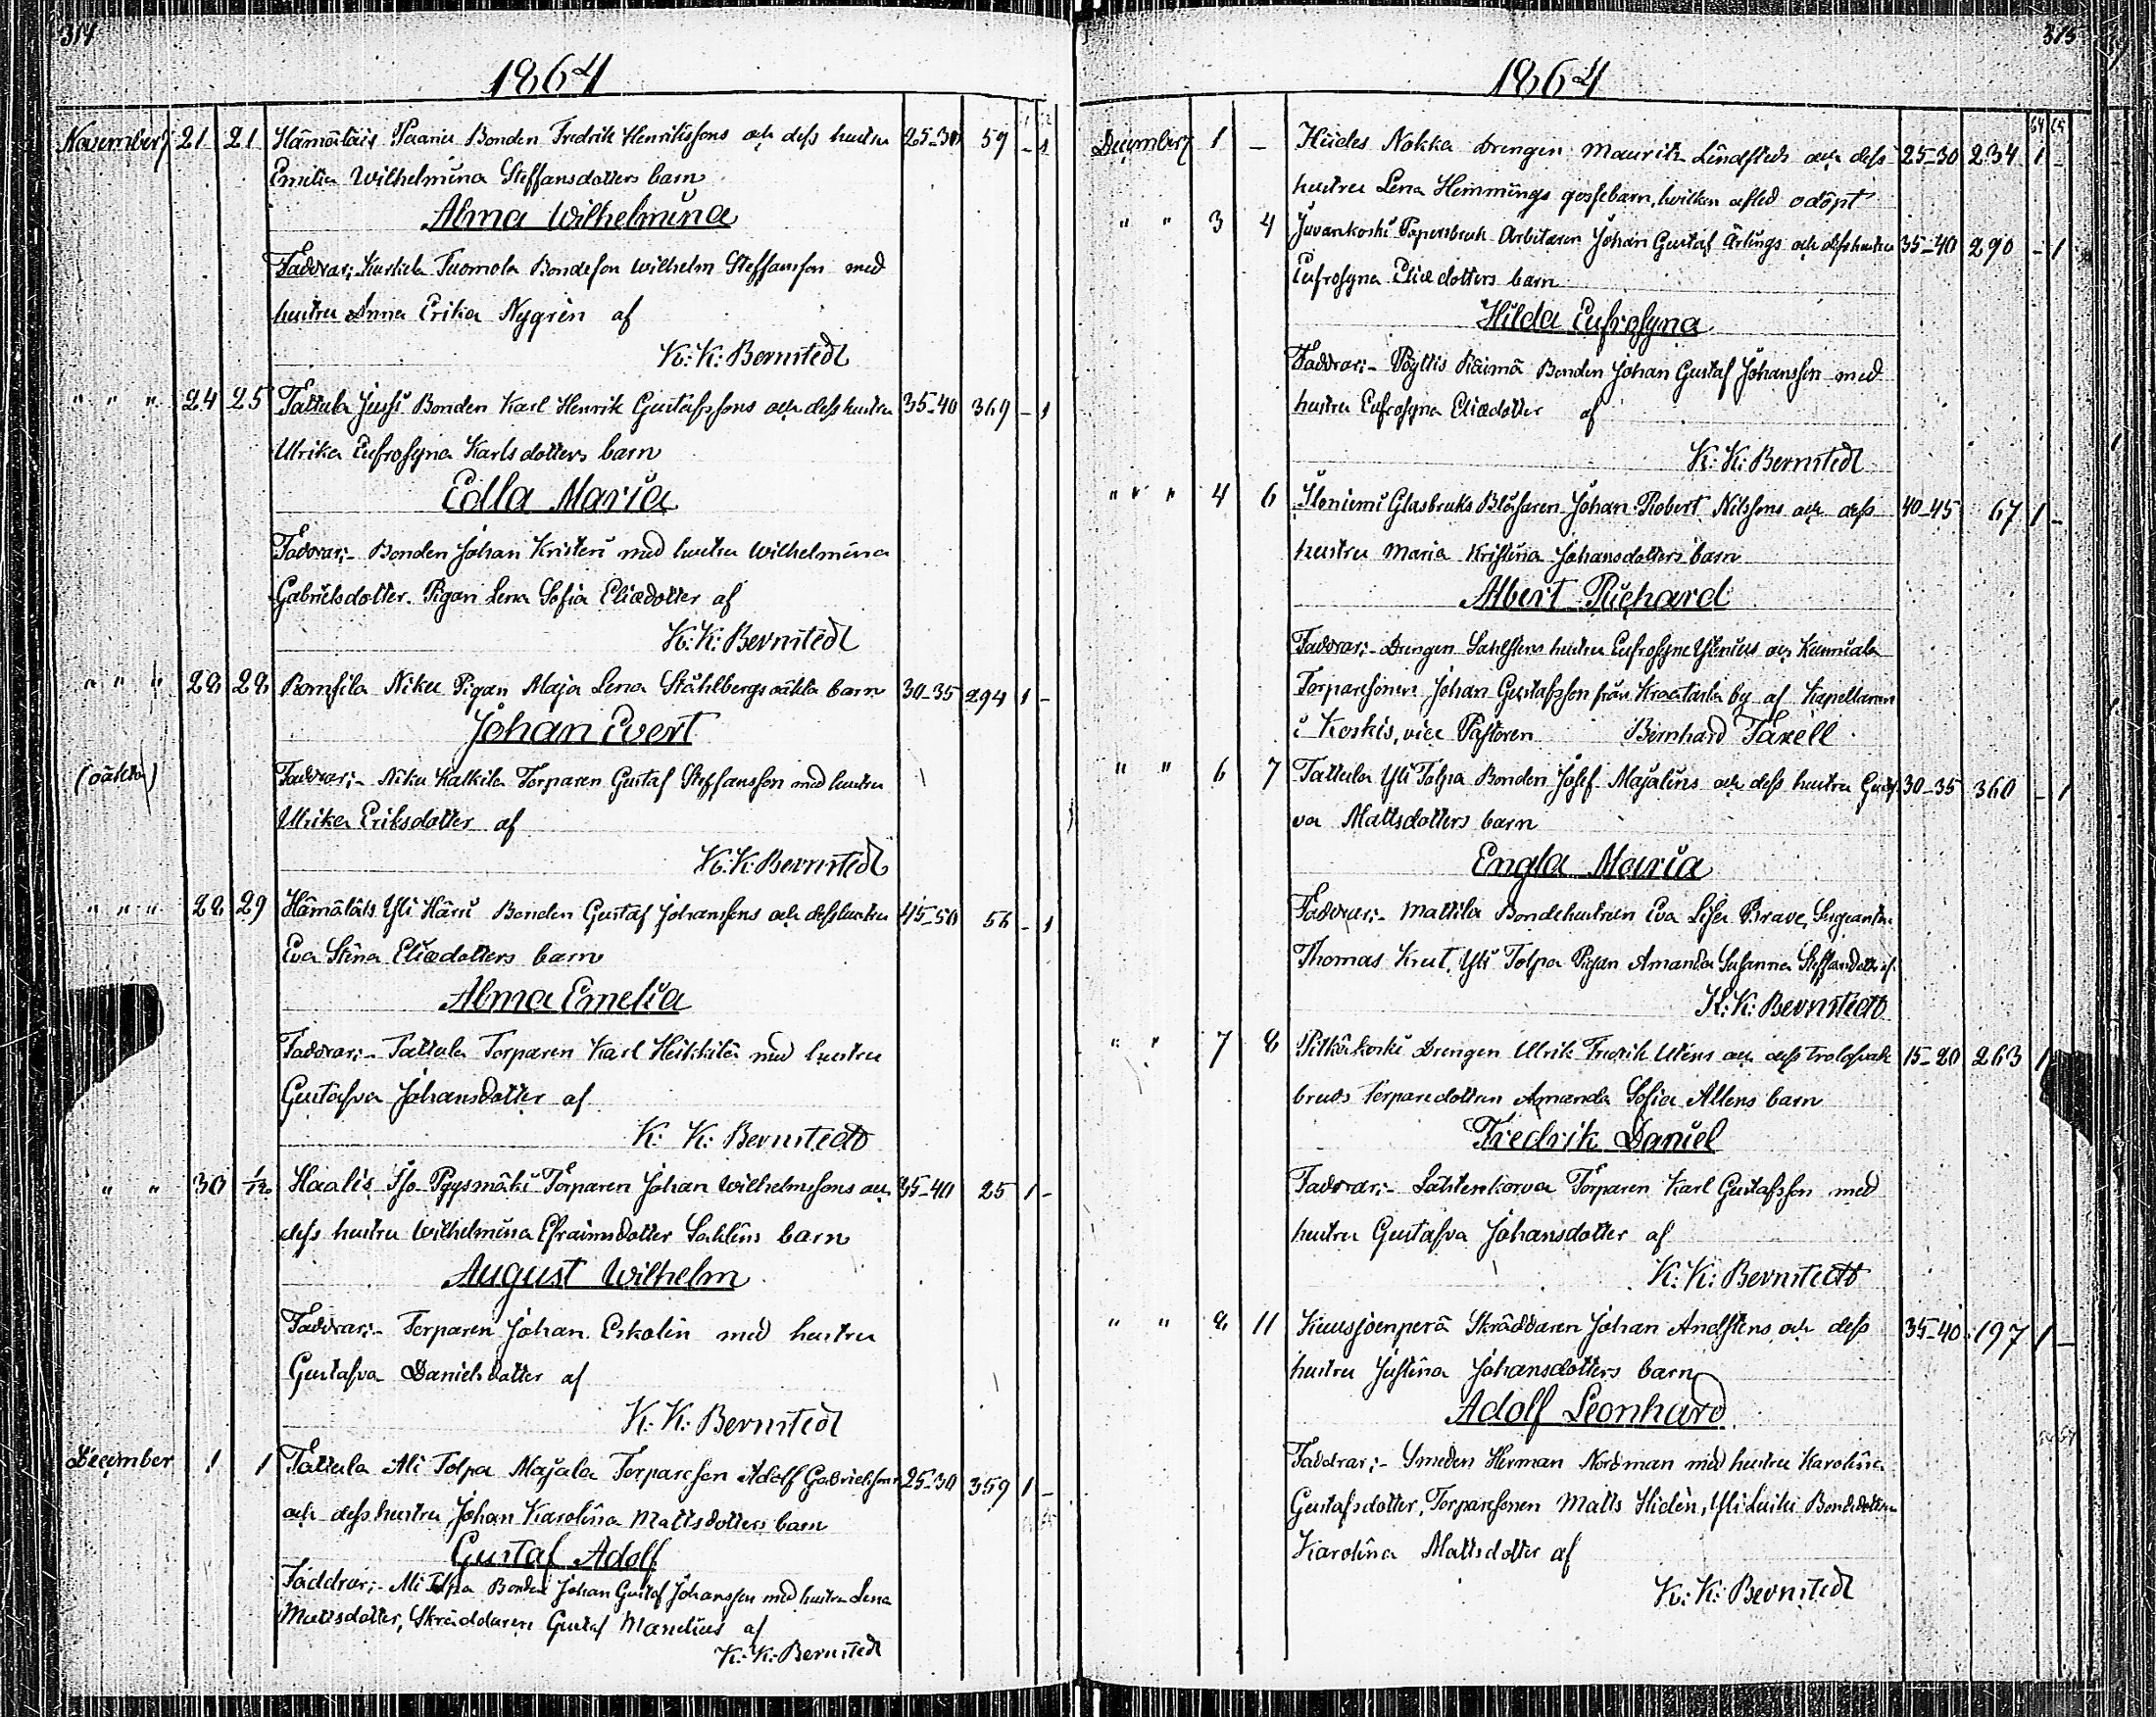 314
1864
November 21 21 Hämäläis Paanu Bonden Fredrik Henrikssons och dess hustru 25-30 59 - 1
Emilia Wilhelmina Steffansdotters barn
Alma Wilhelmina
Faddrar; Tuomola Bondeson Wilhelm Steffansson med
hustru Anna Erika Nygrén af
K: K: Bernstedt
" " " 24 25 Tattula Jussi Bonden Karl Henrik Gustafssons och dess hustru 35-40 369 - 1
Ulrika Eufrosyna Karlsdotters barn
Edla Maria
Faddrar;- Bonden Johan Kristeri med hustru Wilhelmina
Gabrielsdotter. Pigan Lena Sofia Eliædotter af
K: K: Bernstedt
" " " 28 28 Romsila Niku Pigan Maja Lena Ståhlbergs oäkta barn 30-35 294 1 -
Johan Evert
(oäkta) Faddrar;- Niku Kalkila Torparen Gustaf Steffansson med hustru
Ulrika Eriksdotter af
K: K: Bernstedt
" " " 28 29 Hämäläis Yli Härri Bonden Gustaf Johanssons och dess hustru 45-50 56 - 1
Eva Stina Eliædotters barn
Alma Emelia
Faddrar;- Tattula Torparen Karl Heikkilä med hustru
Gustafva Johansdotter af
K: K: Bernstedt
" " 30 1/12 Haalis Iso Pyysmäki Torparen Johan Wilhelmssons och 35-40 25 1 -
dess hustru Wilhelmina Efraimsdotter Sahlins barn
August Wilhelm
Faddrar;- Torparen Johan Eskolin med hustru
Gustafva Danielsdotter af
K: K: Bernstedt
December 1 1 Tattula Ali Tolpa Majala Torpareson Adolf Gabrielssons 25-30 359 1 -
och dess hustru Johan Karolina Mattsdotters barn
Gustaf Adolf
Faddrar;- Ali Tolpa Bonden Johan Gustaf Johansson med hustru Lena
Mattsdotter, Skräddaren Gustaf Mandius af
K: K: Bernstedt
315
1864
64 65
December 1 - Hiides Nokka Drengen Mauritz Lindstedts och dess 25-30 234 1 -
hustru Lena Hemmings gossebarn, hvilken afled odöpt
" " 3 4 Juvankoski Papersbruk Arbetaren Johan Gustaf Ärlings och dess hustru 35-40 290 - 1
Eufrosyna Eliædotters barn
Hilda Eufrosyna
Faddrar;- Pöytis Räimä Bonden Johan Gustaf Johansson med
hustru Eufrosyna Eliædotter af
K: K: Bernstedt
" " " 4 6 Isoniemi Glasbruks Blåsaren Johan Robert Nilssons och dess 40-45 67 1 -
hustru Maria Kristina Johansdotters barn
Albert Richard
Faddrar;- Drengen Sahlstens hustru Eufrosyne Ylenius och
Torparesonen Johan Gustafsson från by af Kapellanen
i Koskis, vice Pastoren Bernhard Taxell
" " 6 7 Tattula Yli Tolpa Bonden Josef Majalins och dess hustru Gustaf- 30-35 360 - 1
va Mattsdotters barn
Engla Maria
Faddrar;- Mattila Bondehustrun Eva Lisa Brave, Sergeanten
Thomas Krut, Yli Tolpa Pigan Amanda Susanna Steffansdotter af
K: K: Bernstedt
" " 7 8 Pitkäkoski Drengen Ulrik Fredrik Uténs och dess trolofvade 15-20 263 1
bruds Torparedottren Amanda Sofia Allens barn
Fredrik Daniel
Faddrar;- Lähteenkorva Torparen Karl Gustafsson med
hustru Gustafva Johansdotter af
K: K: Bernstedt
" " 8 11 Kuusjoenperä Skräddaren Johan Andstens och dess 35-40 197 1 -
hustru Justina Johansdotters barn
Adolf Leonhard
Faddrar;- Smeden Herman Nordman med hustru Karolina
Gustafsdotter, Torparesonen Matts Hidén, Yli Luiki Bondedottren
Karolina Mattsdotter af
K: K: Bernstedt